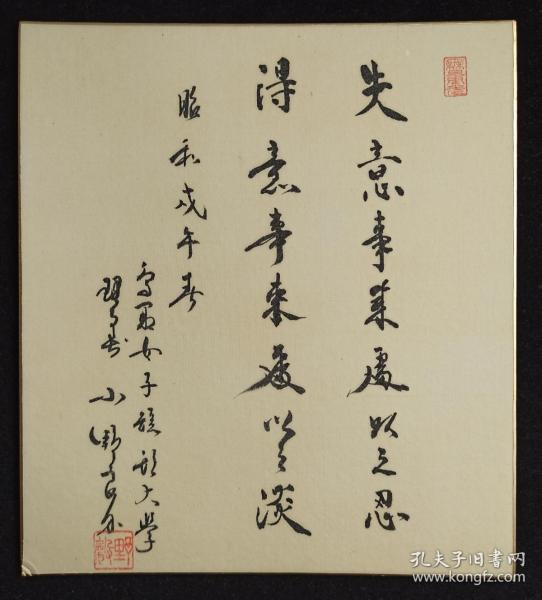 失意事来處以之忍
得意事来處以之淡
昭和戊午春
女子短期大學
小野
孔夫子旧书网
www.kongfz.com